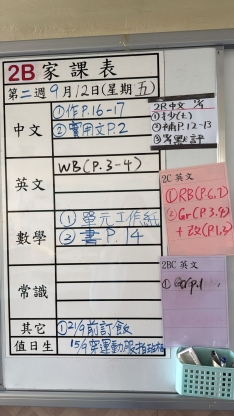 2B 家課表
第二週 9月12日(星期五)
中文
①作P.16-17
②實用文P.2
英文
WB(P.3-4)
數學
①單元工作紙
②書P.14
常識
其它
①2/9前訂飯
值日生
15/9穿運動服指班相
2R中文
①抄(七)
②補P.12-13
2C 英文
①RB(P.6,7)
+改(P1,3)
2BC 英文
① Gr(p.1